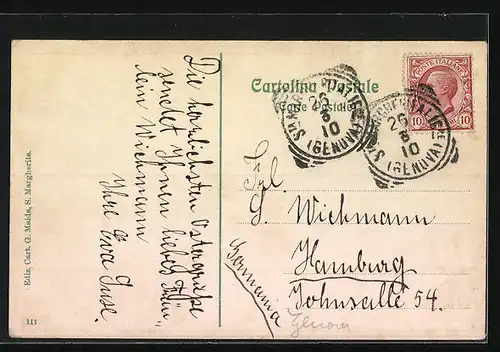 Die herzlichsten Ostergrüße
sendet Ihnen liebes Fräu-
lein Wichmann
Ihre Eva
Cartolina Postale
Carte Postale
POSTE ITALIANE
10 10
S. MARGHERITA LIGURE
26 3 10
(GENOVA)
S. MARGHERITA LIGURE
26 3 10
(GENOVA)
Frl.
Wichmann
Hamburg
Johnsallee 54.
Germania
Edit. Cart. G. Maida, S. Margherita.
111